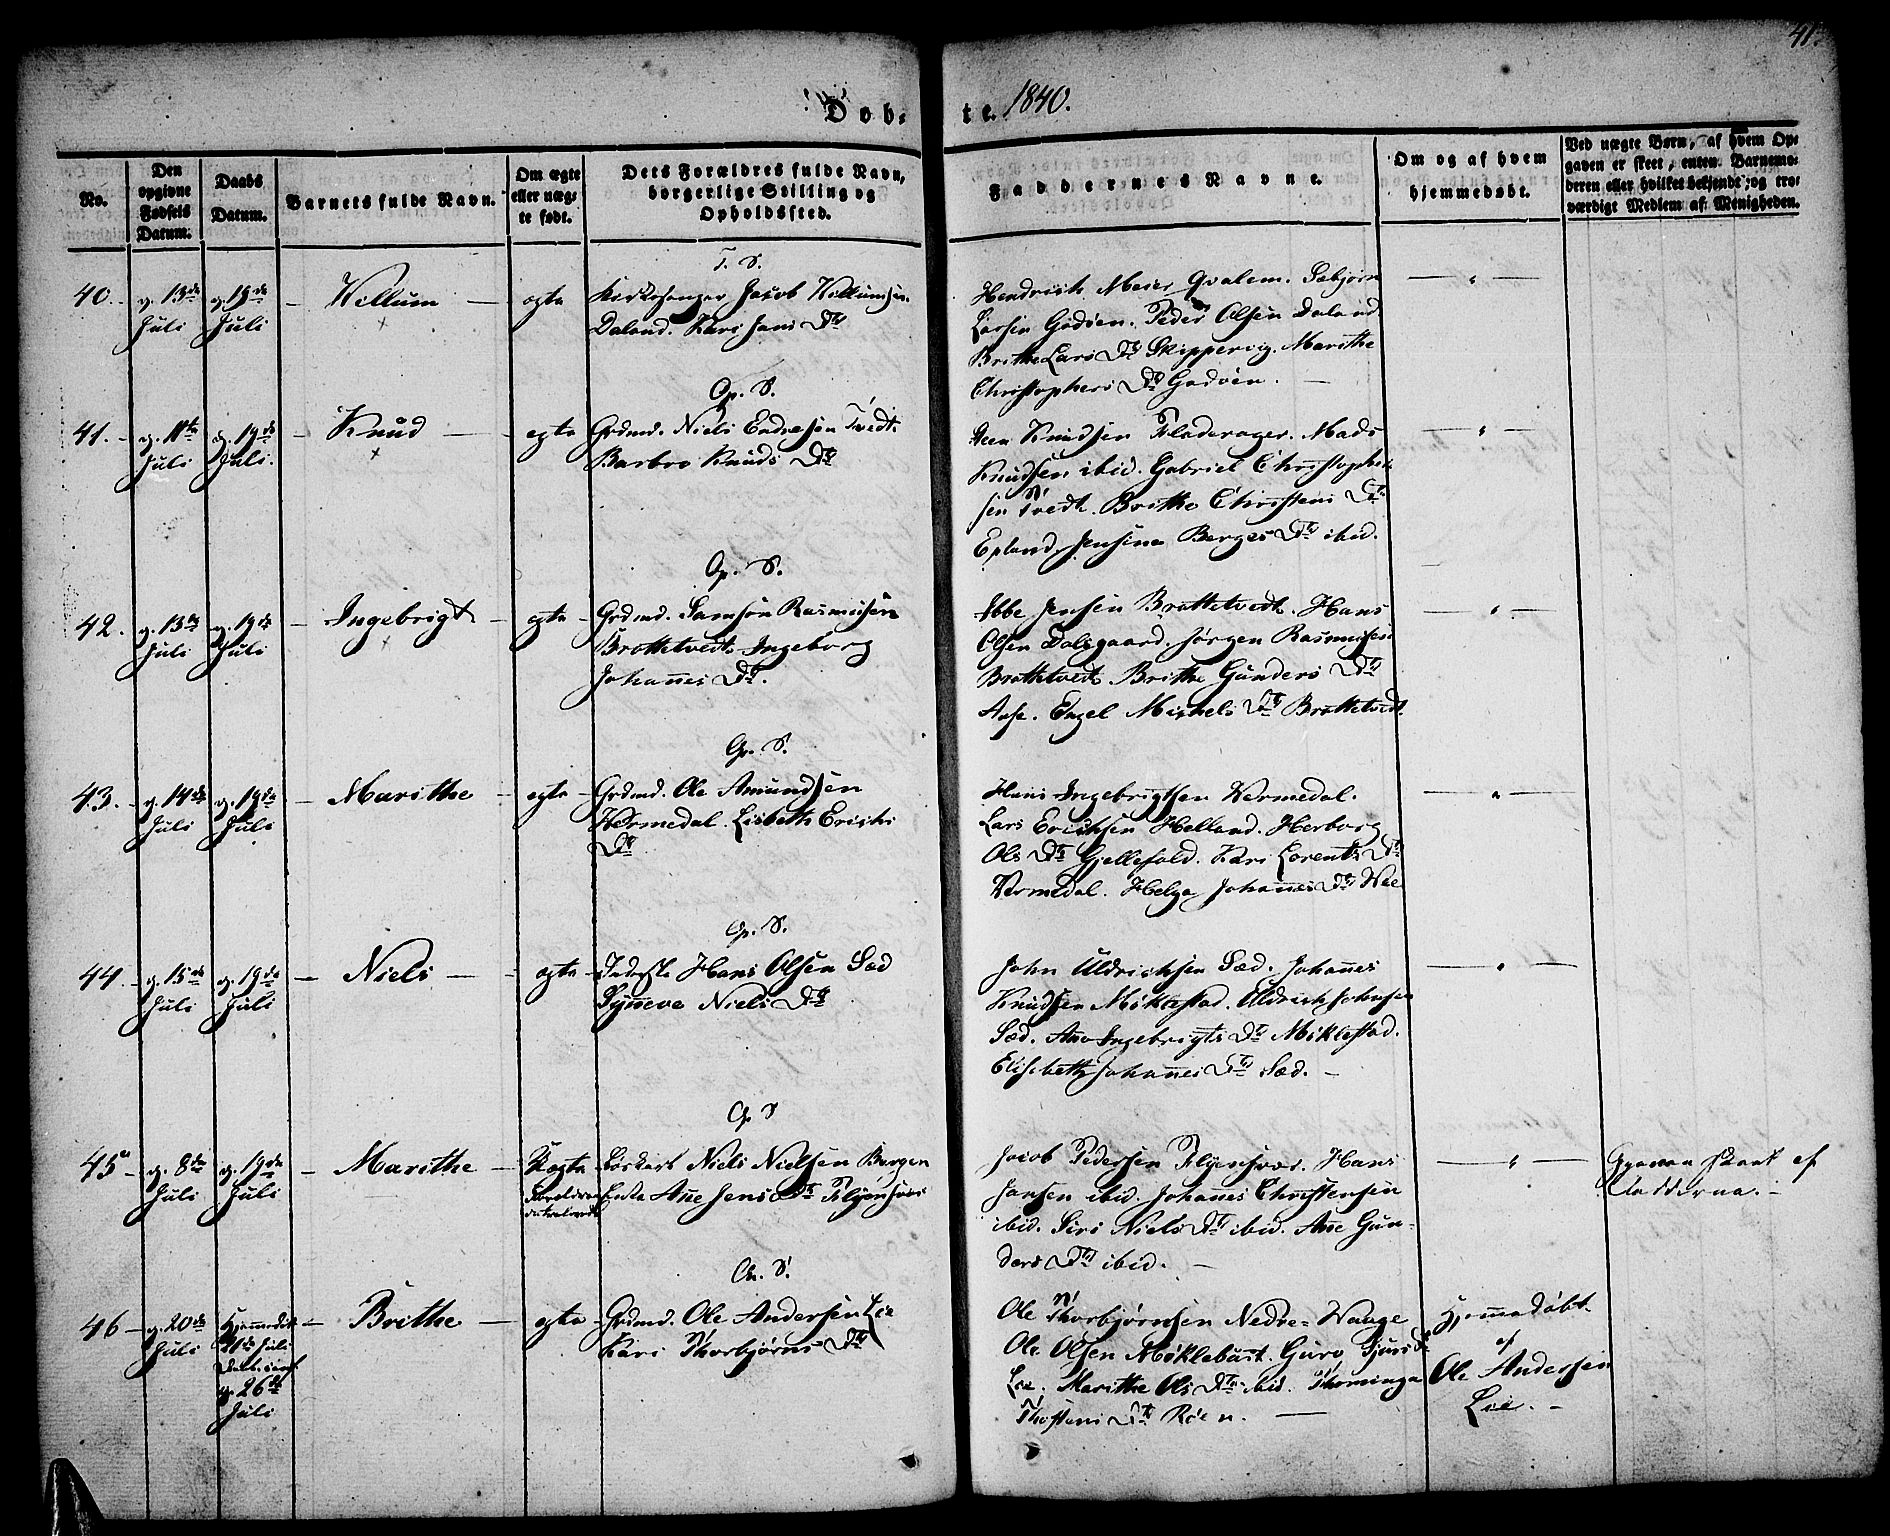 41.
Døb-
te. 1840.
No.
Den opgivne Fødsels Datum.
Daabs Datum.
Barnets fulde Navn.
Om ægte eller uægte født.
Dets Forældres fulde Navn, borgerlige Stilling og Opholdssted.
Faddernes Navne.
Om og af hvem hjemmedøbt.
Ved uægte Børn, af hvem Opgaven er skeet, enten Barnemoderen eller hvilket bekjendt og troværdigt Medlem af Menigheden.
40. d. 13de Juli
d. 19de Juli
Willum
ægte
Kirkesanger Jacob Willumsen
Daland. Kari Jans Dtr
Hendrich Meier Qvalem. Sebjørn
Larsen Godøen. Peder Olsen Daland
Brithe Lars Dtr Skippervig. Marithe
Christophers Dtr Godøen.
41.
d. 11te Juli
d. 19de Juli.
Knud
ægte
Grdmd. Niels Endresen Tvedt.
Barbro Knuds Dtr
Knudsen Fladerager. Mads
Knudsen ibid. Gabriel Christopher-
sen Tvedt. Brithe Christens Dtr
Epland. Jensine Berges Dtr ibid.
42.
d. 13de Juli
d. 19de Juli
Ingebrigt
ægte
Grdmd. Samson Rasmusen
Brattetvedt. Ingeborg
Johannes Dtr.
Ebbe Jensen Brattetvedt. Hans
Olsen Dalsgaard. Jørgen Rasmusen
Brattetvedt. Brithe Gunders Dtr
Aase. Engel Michels Dtr Brattetvedt.
43.
d. 14de Juli
d. 19de Juli
Marithe
ægte
Grdmd. Ole Amundsen
Wermedal. Lisbeth Erichs
Dtr
Hans Ingebrigtsen Wermedal.
Lars Erichsen Helland. Herborg
Ols Dtr Gjellefald. Kari Lorents Dtr
Wermedal. Helga Johannes Dtr Wee
44.
d. 15de Juli
d. 19de Juli
Niels
ægte
Inderste Hans Olsen Sæd
Synneva Niels Dtr
John Uldrichsen Sæd. Johannes
Knudsen Møklestad. Uldrich Johnsen
Sæd. Ane Ingebrigts Dtr Møklestad.
Elisabeth Johannes Dtr Sæd.
45
d. 8de Juli
d. 19de Juli
Marithe
Uægte
Løskarl Niels Nielsen Bergen
Enke Anne Jens Dtr Flyensvær
Jacob Pedersen Flyensvær. Hans
Jansen ibid. Johannes Christensen
ibid. Siri Niels Dtr ibid. Ane Gun-
ders Dtr ibid.
af
Fadderne.
46
d. 20de Juli
Hjemmedøbt
Juli
d. 26de
Juli
Brithe
ægte
Grdmd. Ole Andersen Lie
Kari Thorbjørns Dtr
Ole Thorbjørnsen Nedre-Waage
Ole Olsen Møklebust. Guro Sjurs Dtr
Lie. Marithe Ols Dtr ibid. Thominga
Thostens Dtr Røen.
Hjemmedøbt
af
Ole Andersen
Lie.